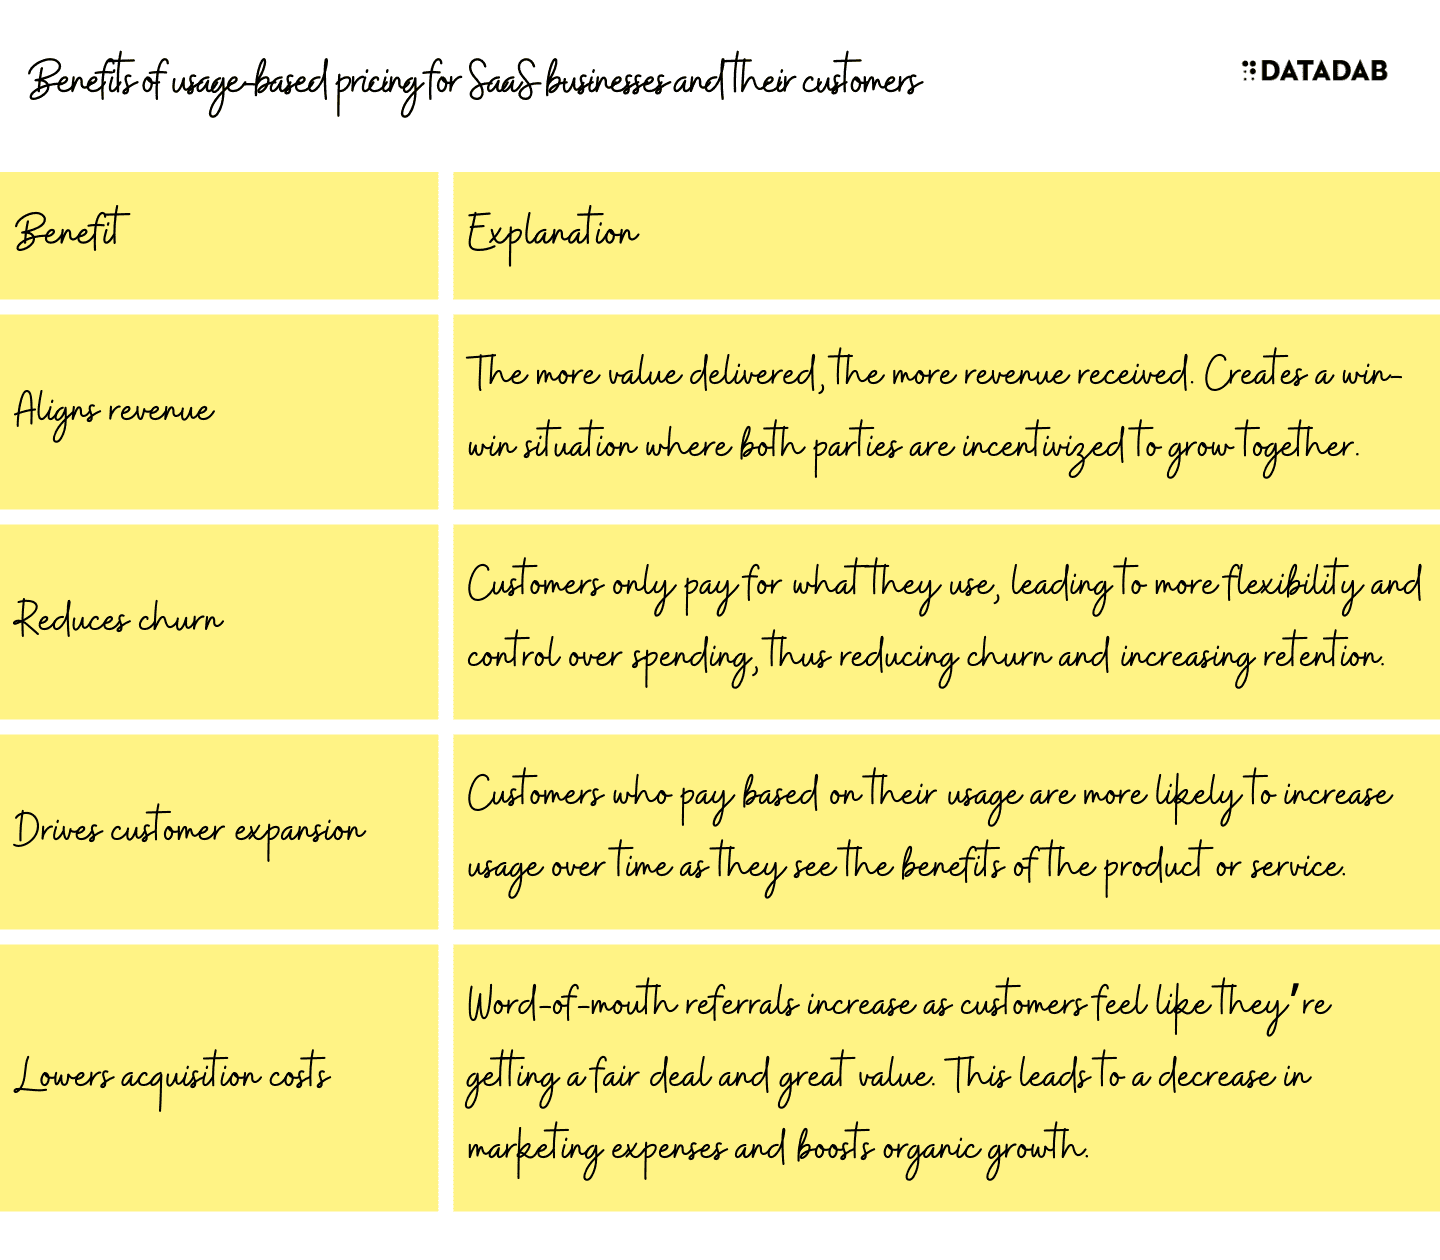 Benefits of usage-based pricing for SaaS businesses and their customers
DATADAB
Benefit
Explanation
Aligns revenue
The more value delivered, the more revenue received. Creates a win-
win situation where both parties are incentivized to grow together.
Reduces churn
Customers only pay for what they use, leading to more flexibility and
control over spending, thus reducing churn and increasing retention.
Drives customer expansion
Customers who pay based on their usage are more likely to increase
usage over time as they see the benefits of the product or service.
Lowers acquisition costs
Word-of-mouth referrals increase as customers feel like they're
getting a fair deal and great value. This leads to a decrease in
marketing expenses and boosts organic growth.